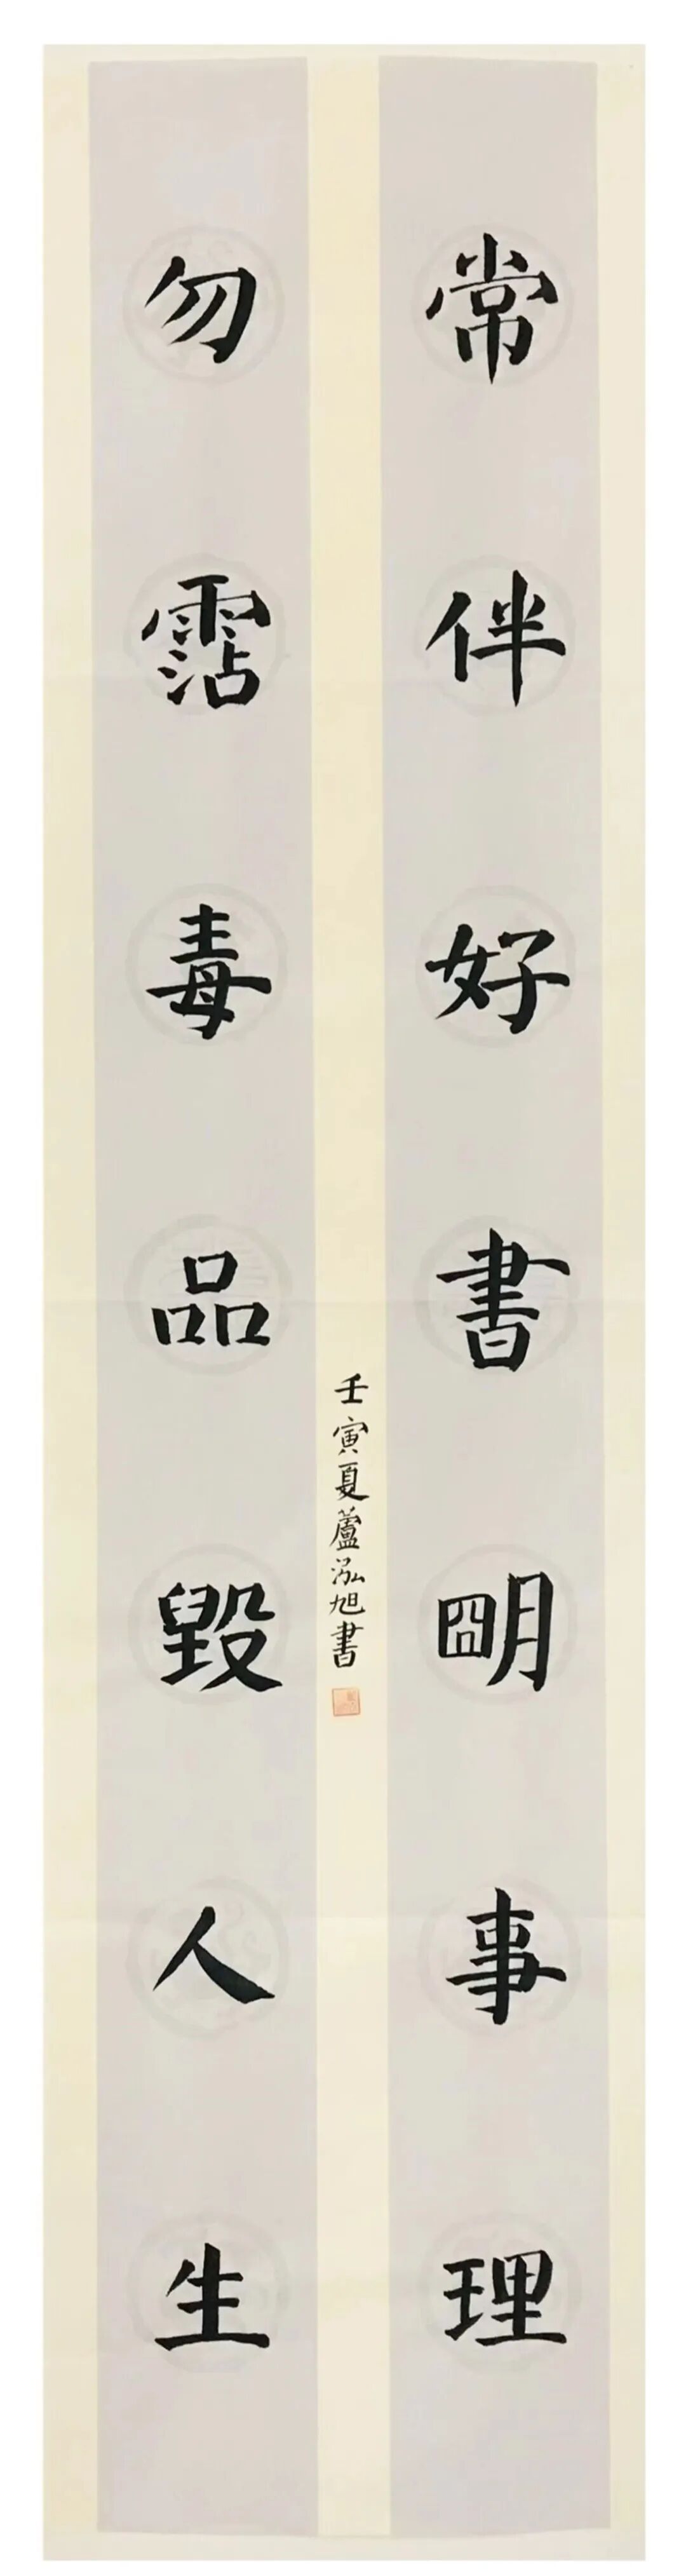 常伴好書朙事理
勿霑毒品毀人生
壬寅夏蘆泓旭書